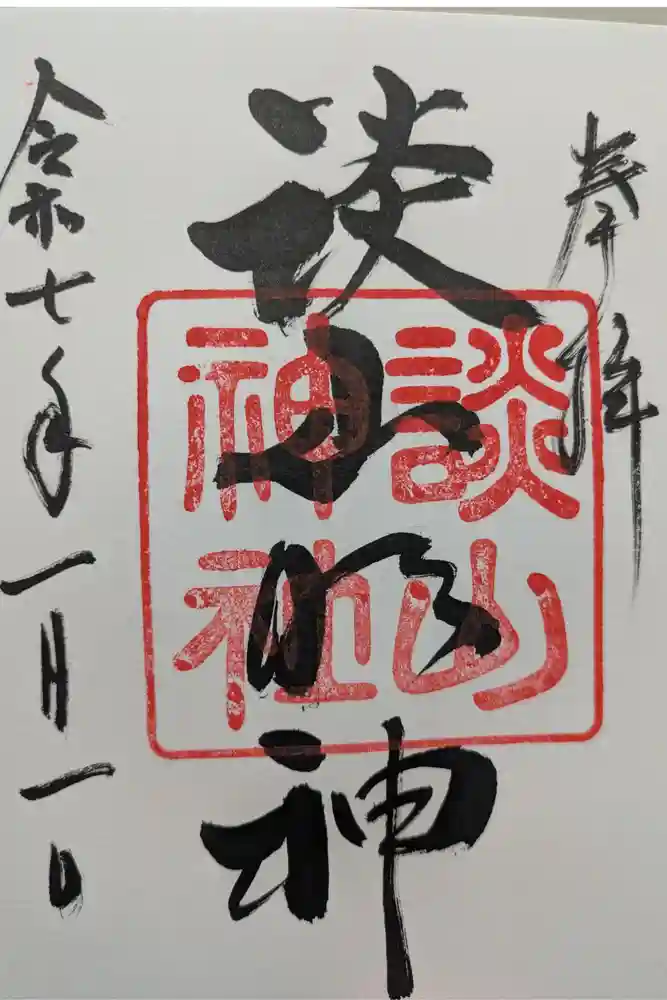 奉拝
談山明神
談山
神社
令和七年一月一日